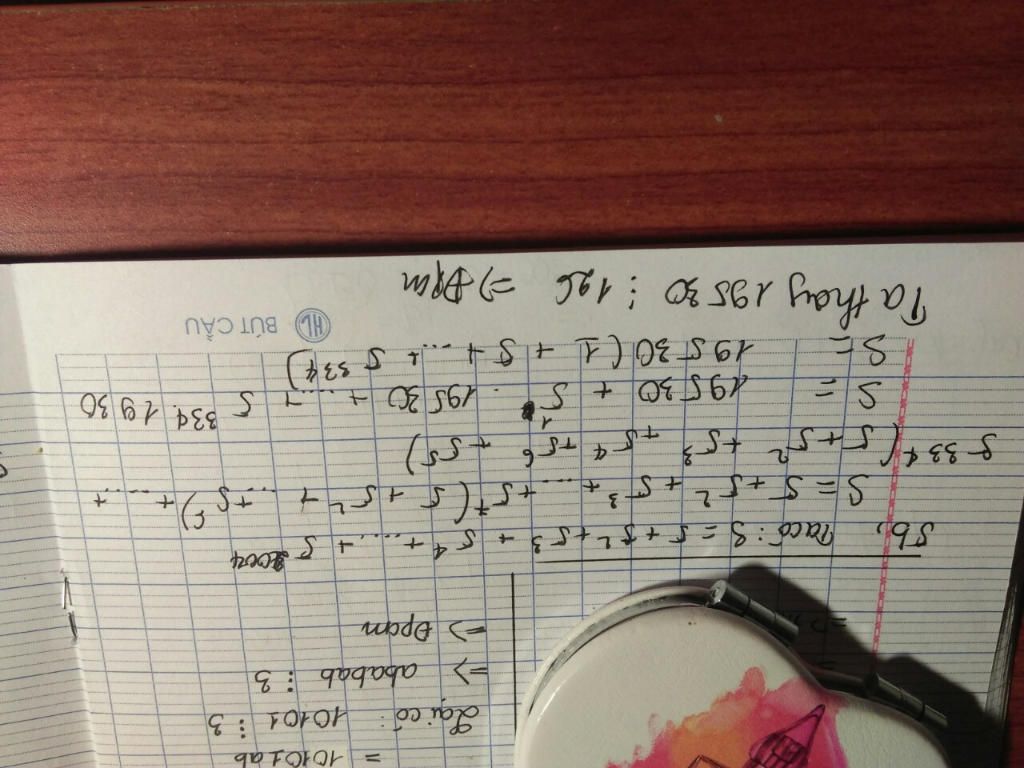 = 10101ab
Lại có: 10101 ⋮ 3
=> ababab ⋮ 3
=> Đpcm
5b, Ta có: S = 5 + 5² + 5³ + 5⁴ + .... + 5²⁰⁰⁴
S = 5 + 5² + 5³ + ... + 5⁷(5 + 5² + .... + 5⁵) + ..... +
5³³⁴(5 + 5² + 5³ + 5⁴ + 5⁶ + 5⁵)
S = 19530 + 5¹ . 19530 + ....+ 5³³⁴.1930
S = 19530(1 + 5 + .... + 5³³⁴)
HL BÚT CẦU
Ta thấy 19530 ⋮ 126 => Đpcm